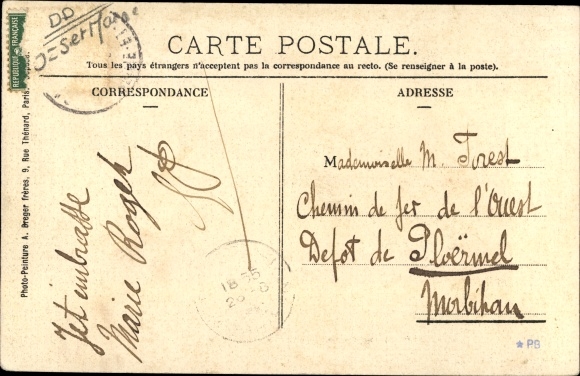 DD
RÉPUBLIQUE FRANÇAISE
CARTE POSTALE.
Tous les pays étrangers n'acceptent pas la correspondance au recto. (Se renseigner à la poste).
CORRESPONDANCE
ADRESSE
Photo-Peinture A. Breger frères, 9, Rue Thénard, Paris.
Jet'embrasse
Marie Roger
Mademoiselle M. Forest
Chemin de fer de l'Ouest
Depot de Ploërmel
Morbihan
18
★ PB